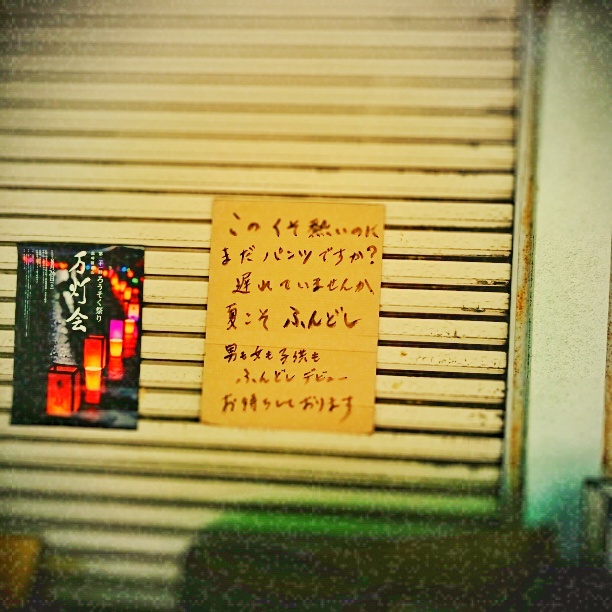 このくそ熱いのに
まだパンツですか?
遅れていませんか、
夏こそふんどし
男も女も子供も
ふんどしデビュー
お待ちしております
ろうそく祭り
万灯会